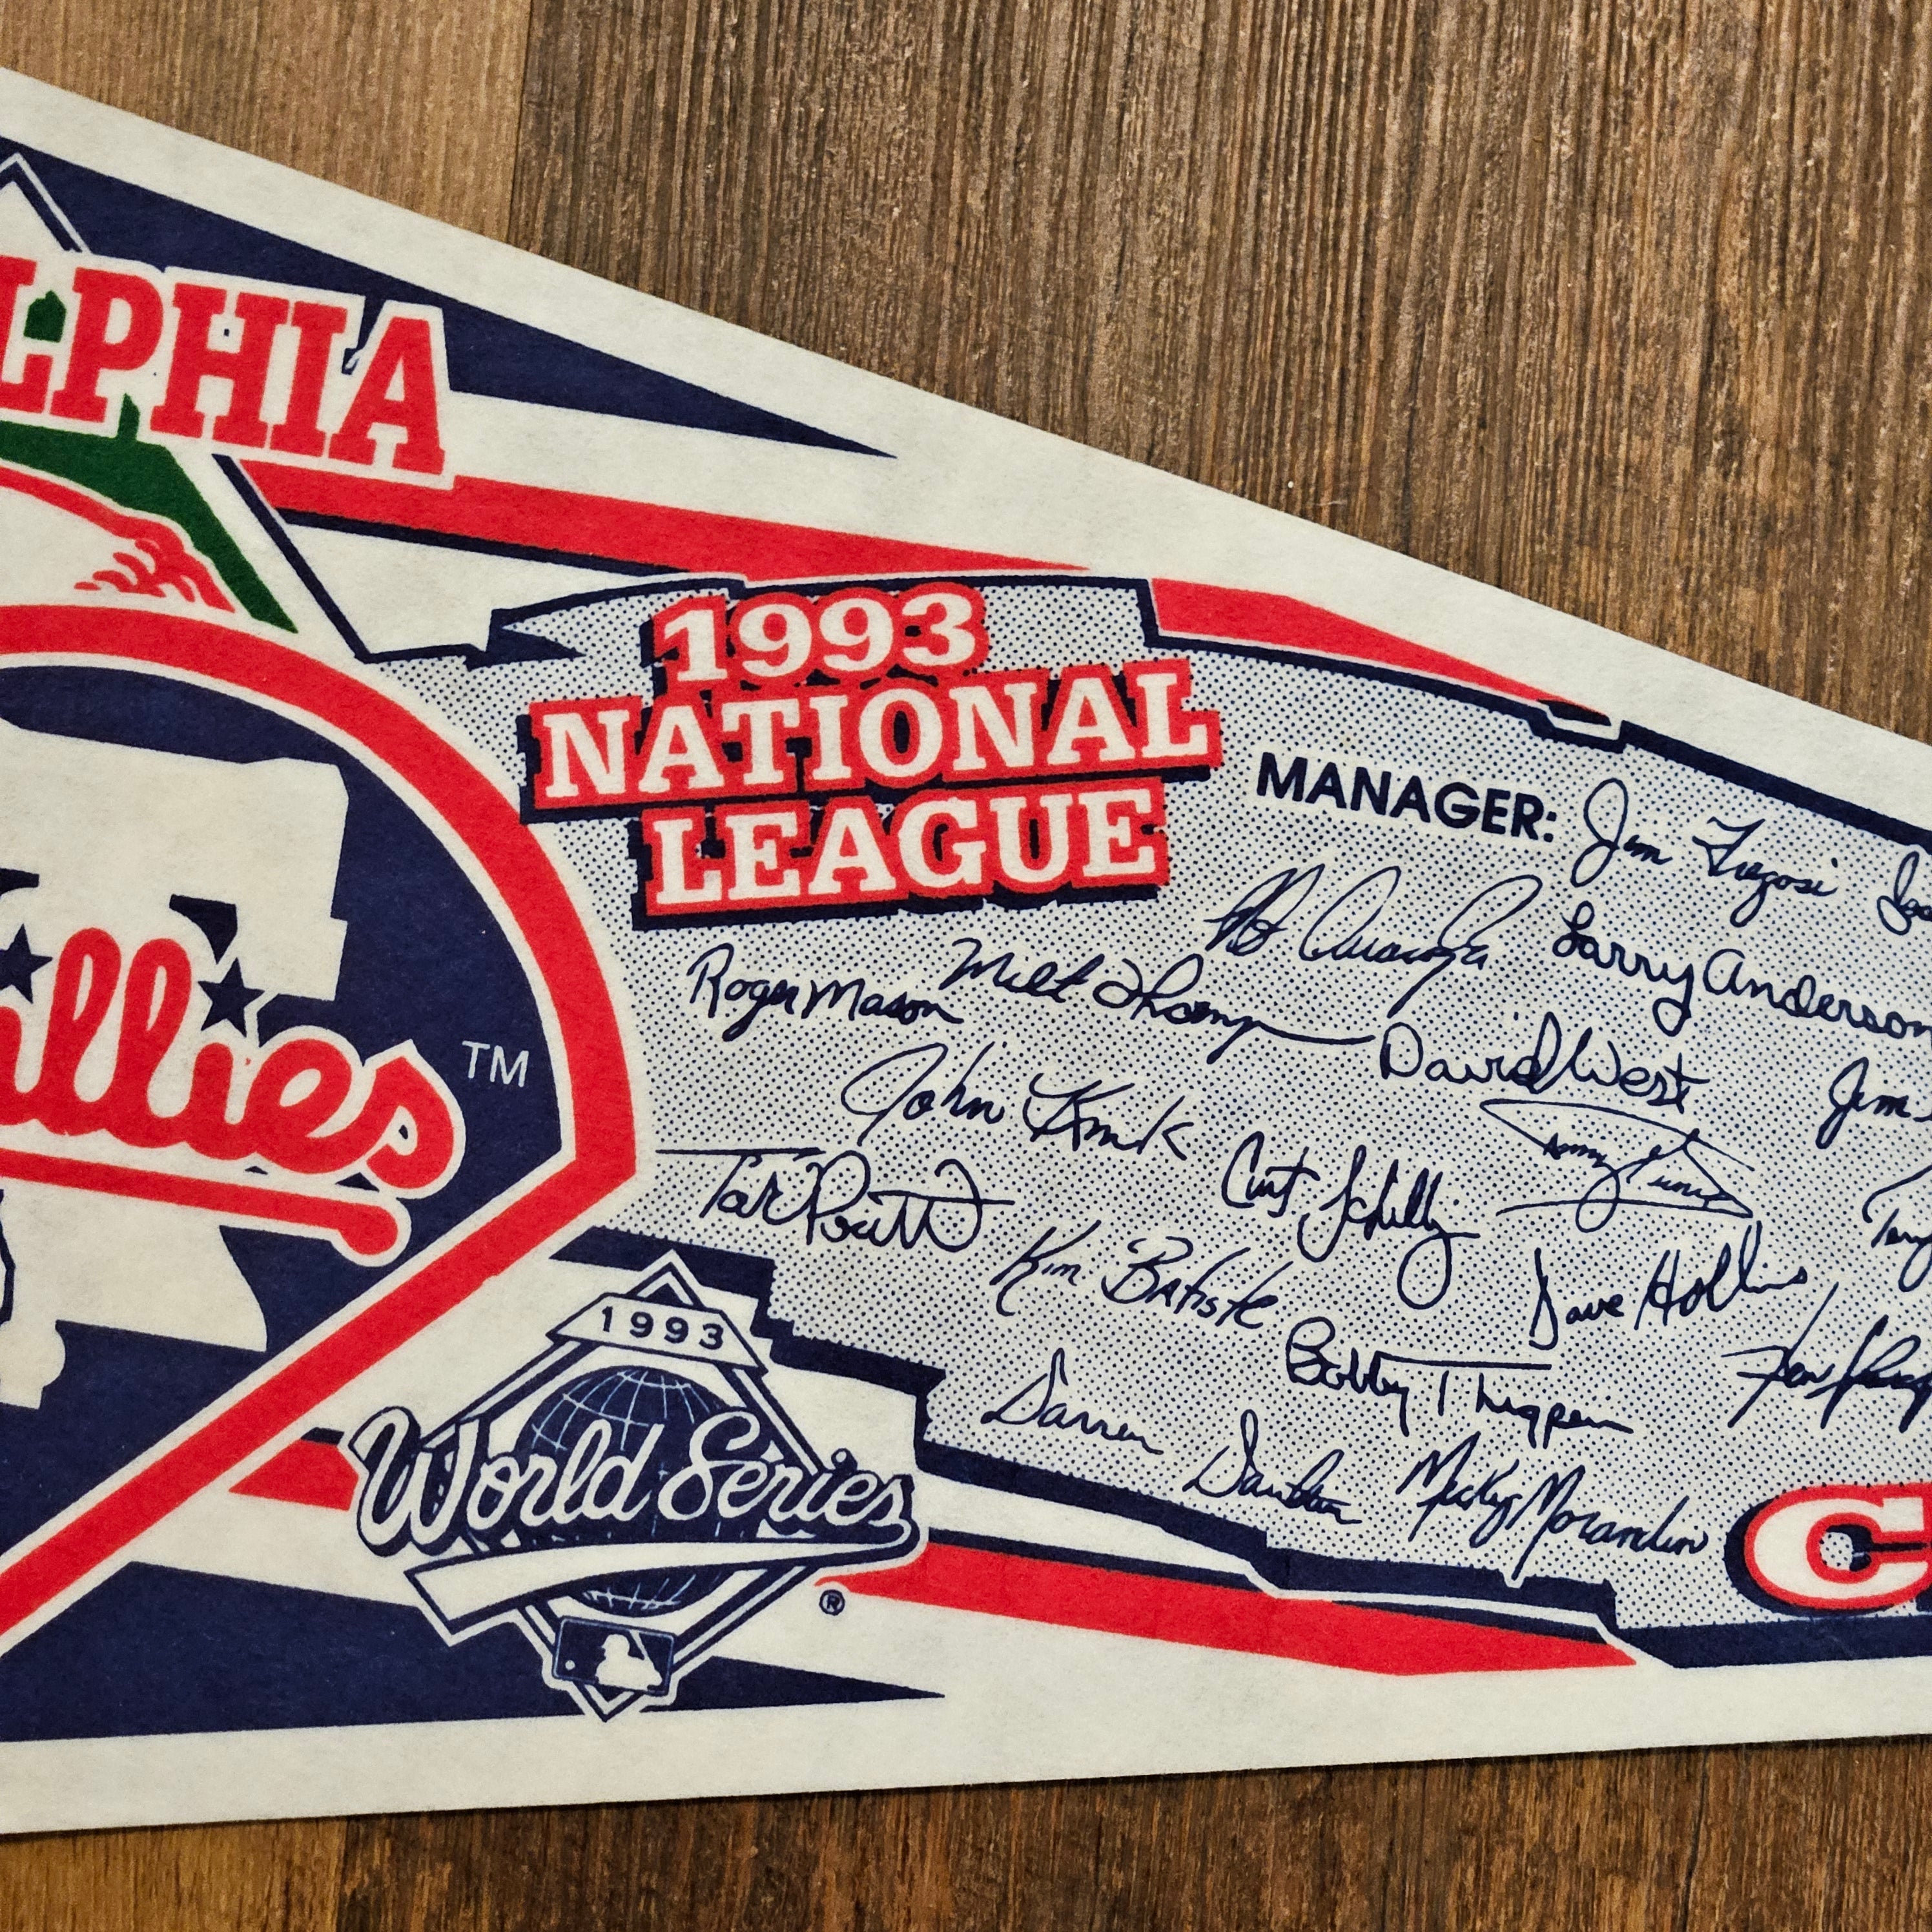 LPHIA
llies
TM
1993
NATIONAL
LEAGUE
MANAGER: Jim Fregosi
Larry Andersen
Roger Mason
Milt Thomp
David West
Jim
John Kruk
Curt Schilling
Tommy Greene
Tony
Todd Pratt
Kim Batiste
Dave Hollins
Bobby Thigpen
Darren Daulton
Mickey Morandini
1993
World Series
®
C